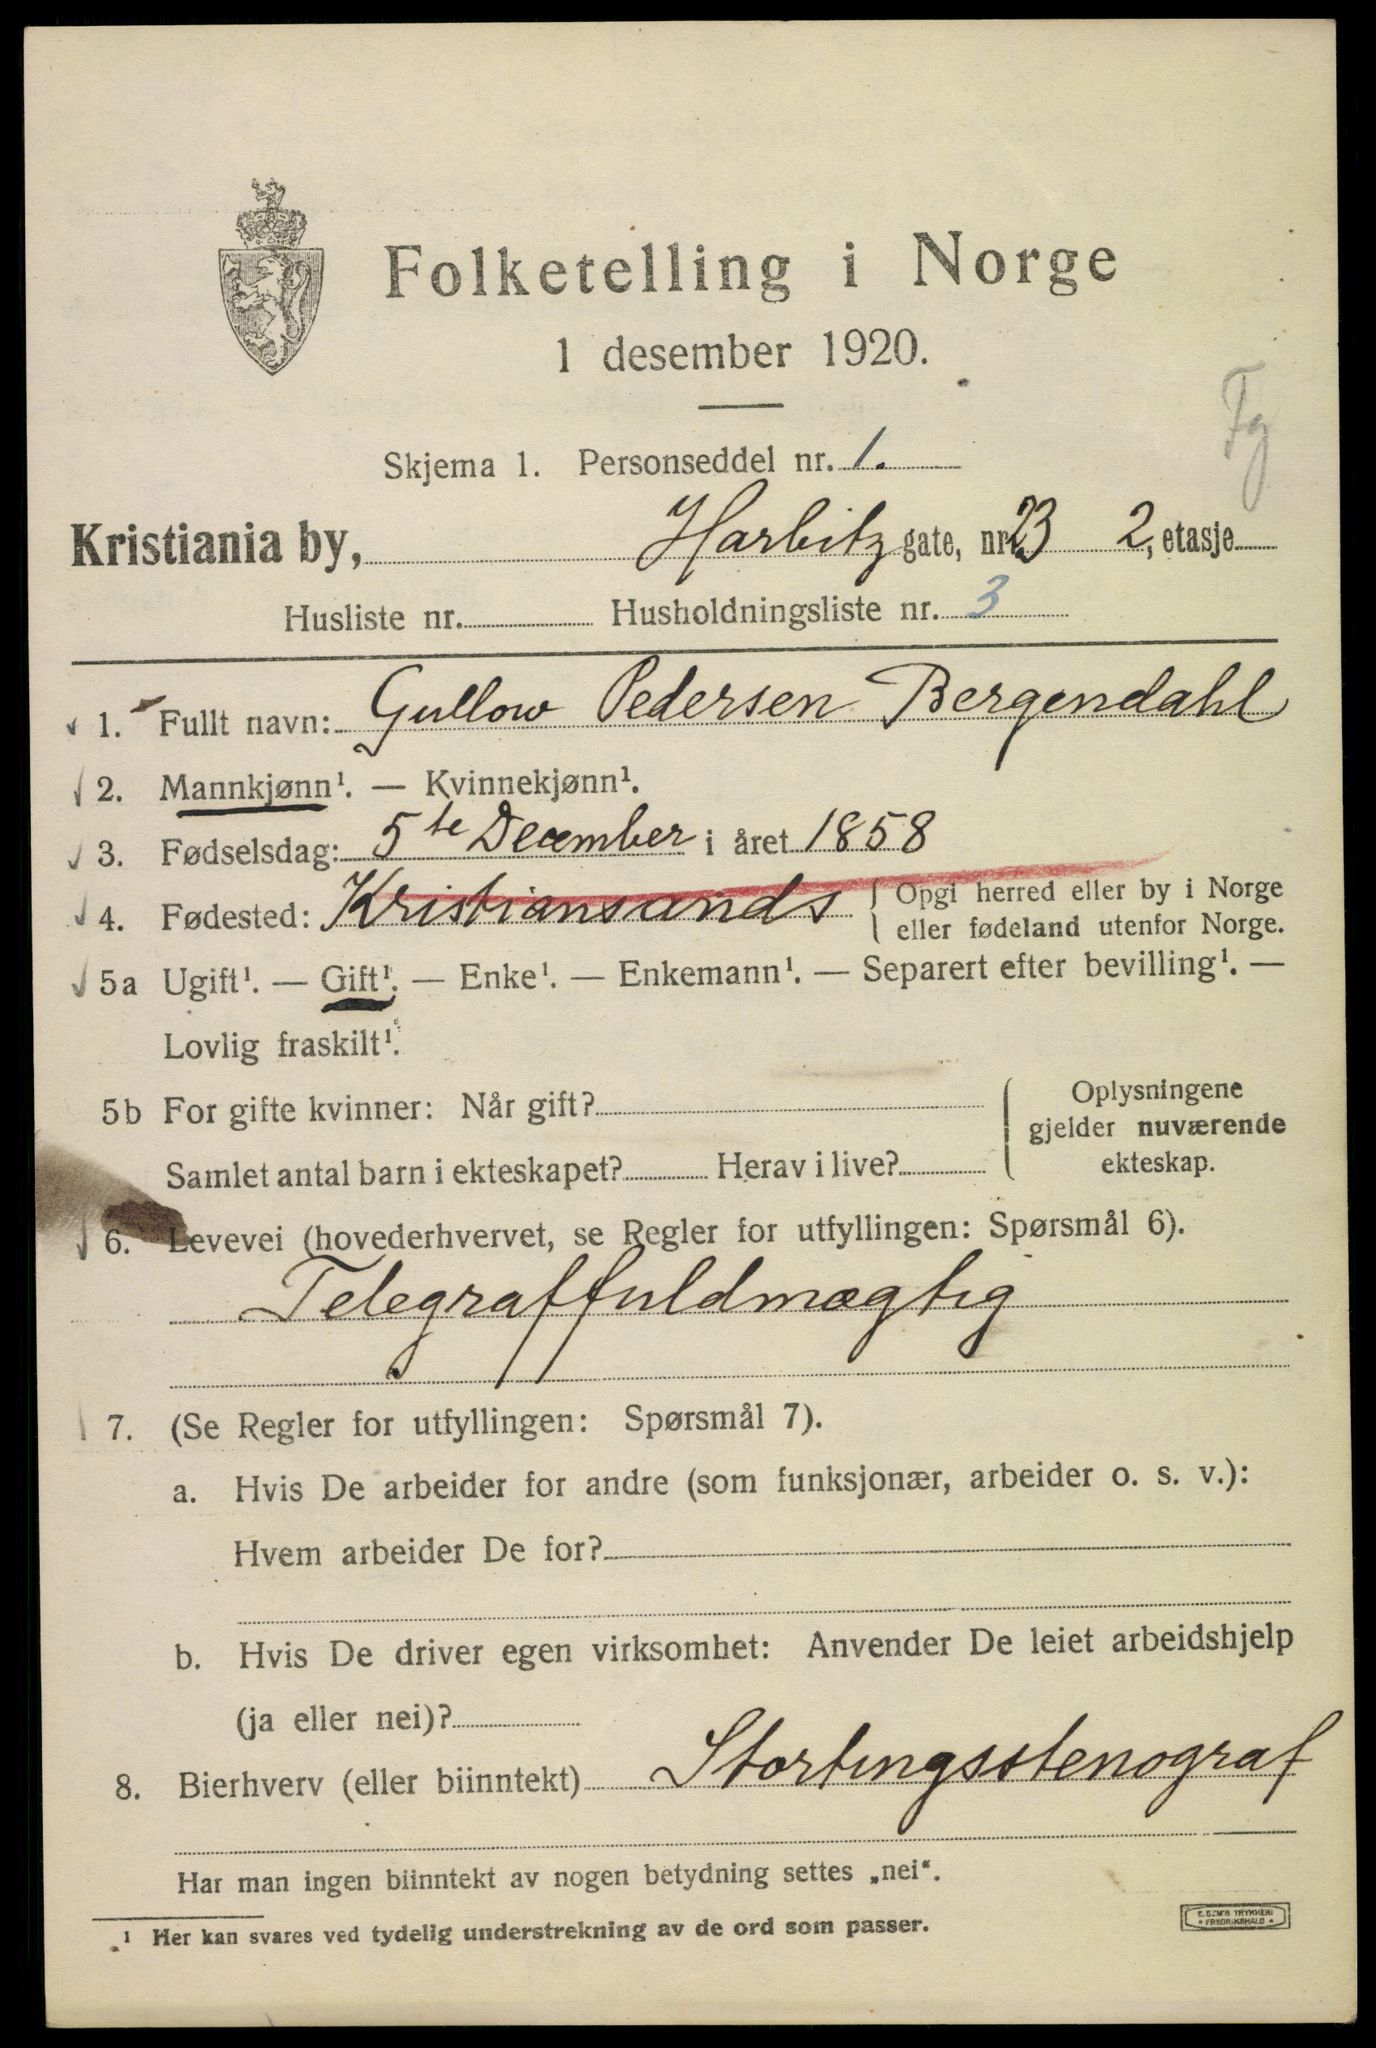 Folketelling i Norge
1 desember 1920.
Fg
Skjema 1. Personseddel nr. 1.
Kristiania by, Harbitz gate, nr. 23 2, etasje
Husliste nr. Husholdningsliste nr. 3
1. Fullt navn: Gullow Pedersen Bergendahl
2. Mannkjønn¹. — Kvinnekjønn¹.
3. Fødselsdag: 5te December i året 1858
4. Fødested: Kristiansands { Opgi herred eller by i Norge
eller fødeland utenfor Norge.
5a Ugift¹. — Gift¹. — Enke¹. — Enkemann¹. — Separert efter bevilling¹. —
Lovlig fraskilt¹.
5b For gifte kvinner: Når gift? { Oplysningene
gjelder nuværende
Samlet antal barn i ekteskapet? Herav i live? ekteskap.
6. Levevei (hovederhvervet, se Regler for utfyllingen: Spørsmål 6).
Telegraffuldmægtig
7. (Se Regler for utfyllingen: Spørsmål 7).
a. Hvis De arbeider for andre (som funksjonær, arbeider o. s. v.):
Hvem arbeider De for?
b. Hvis De driver egen virksomhet: Anvender De leiet arbeidshjelp
(ja eller nei)?
8. Bierhverv (eller biinntekt) Stortingsstenograf
Har man ingen biinntekt av nogen betydning settes „nei“.
¹ Her kan svares ved tydelig understrekning av de ord som passer.
E. SEM'S TRYKKERI
FREDRIKSHALD